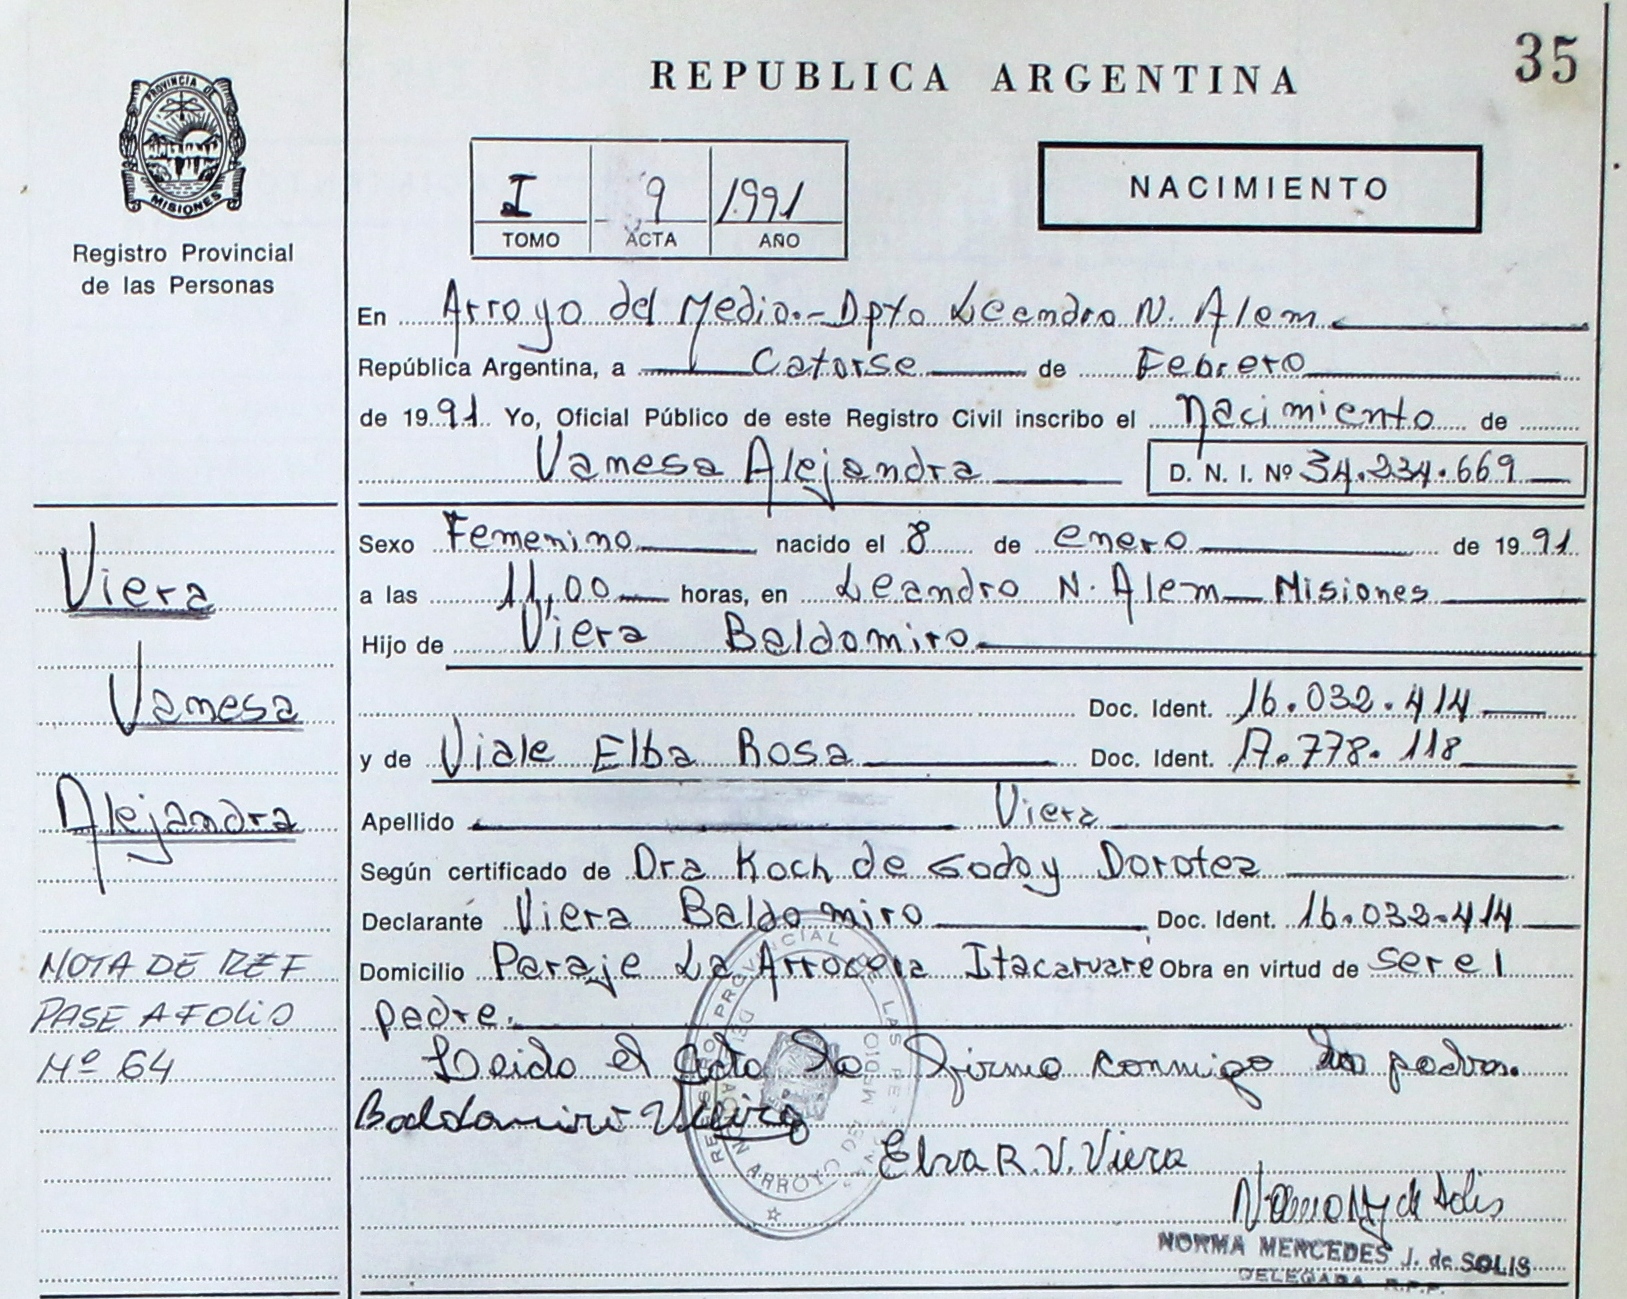 35
REPUBLICA ARGENTINA
PROVINCIA DE
MISIONES
Registro Provincial
de las Personas
I 9 1991
TOMO ACTA AÑO
NACIMIENTO
En Arroyo del Medio.- Dpto Leandro N. Alem
República Argentina, a Catorse de Febrero
de 1991. Yo, Oficial Público de este Registro Civil inscribo el Nacimiento de
Vanesa Alejandra D. N. I. Nº 34.234.669
Sexo Femenino nacido el 8 de enero de 1991
a las 11,00 horas, en Leandro N. Alem Misiones
Hijo de Viera Baldomiro
Doc. Ident. 16.032.414
y de Viale Elba Rosa Doc. Ident. 17.778.118
Apellido Viera
Según certificado de Dra Koch de Godoy Dorotea
Declarante Viera Baldomiro Doc. Ident. 16.032.414
Domicilio Paraje La Arrocera Itacaruare Obra en virtud de ser el
padre.
Leido el acta la firma conmigo los padres.
Baldomiro Vieira
Elva R. V. Viera
NORMA MERCEDES J. de SOLIS
DELEGADA R.P.P.
Viera
Vanesa
Alejandra
NOTA DE REF
PASE A FOLIO
Nº 64
REGISTRO PROVINCIAL DE LAS PERSONAS
ARROYO DEL MEDIO